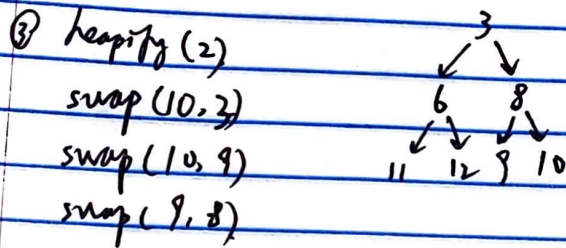 ③ heapify (2)
swap (10, 3)
swap (10, 9)
swap (9, 8)
3
6 8
11 12 9 10